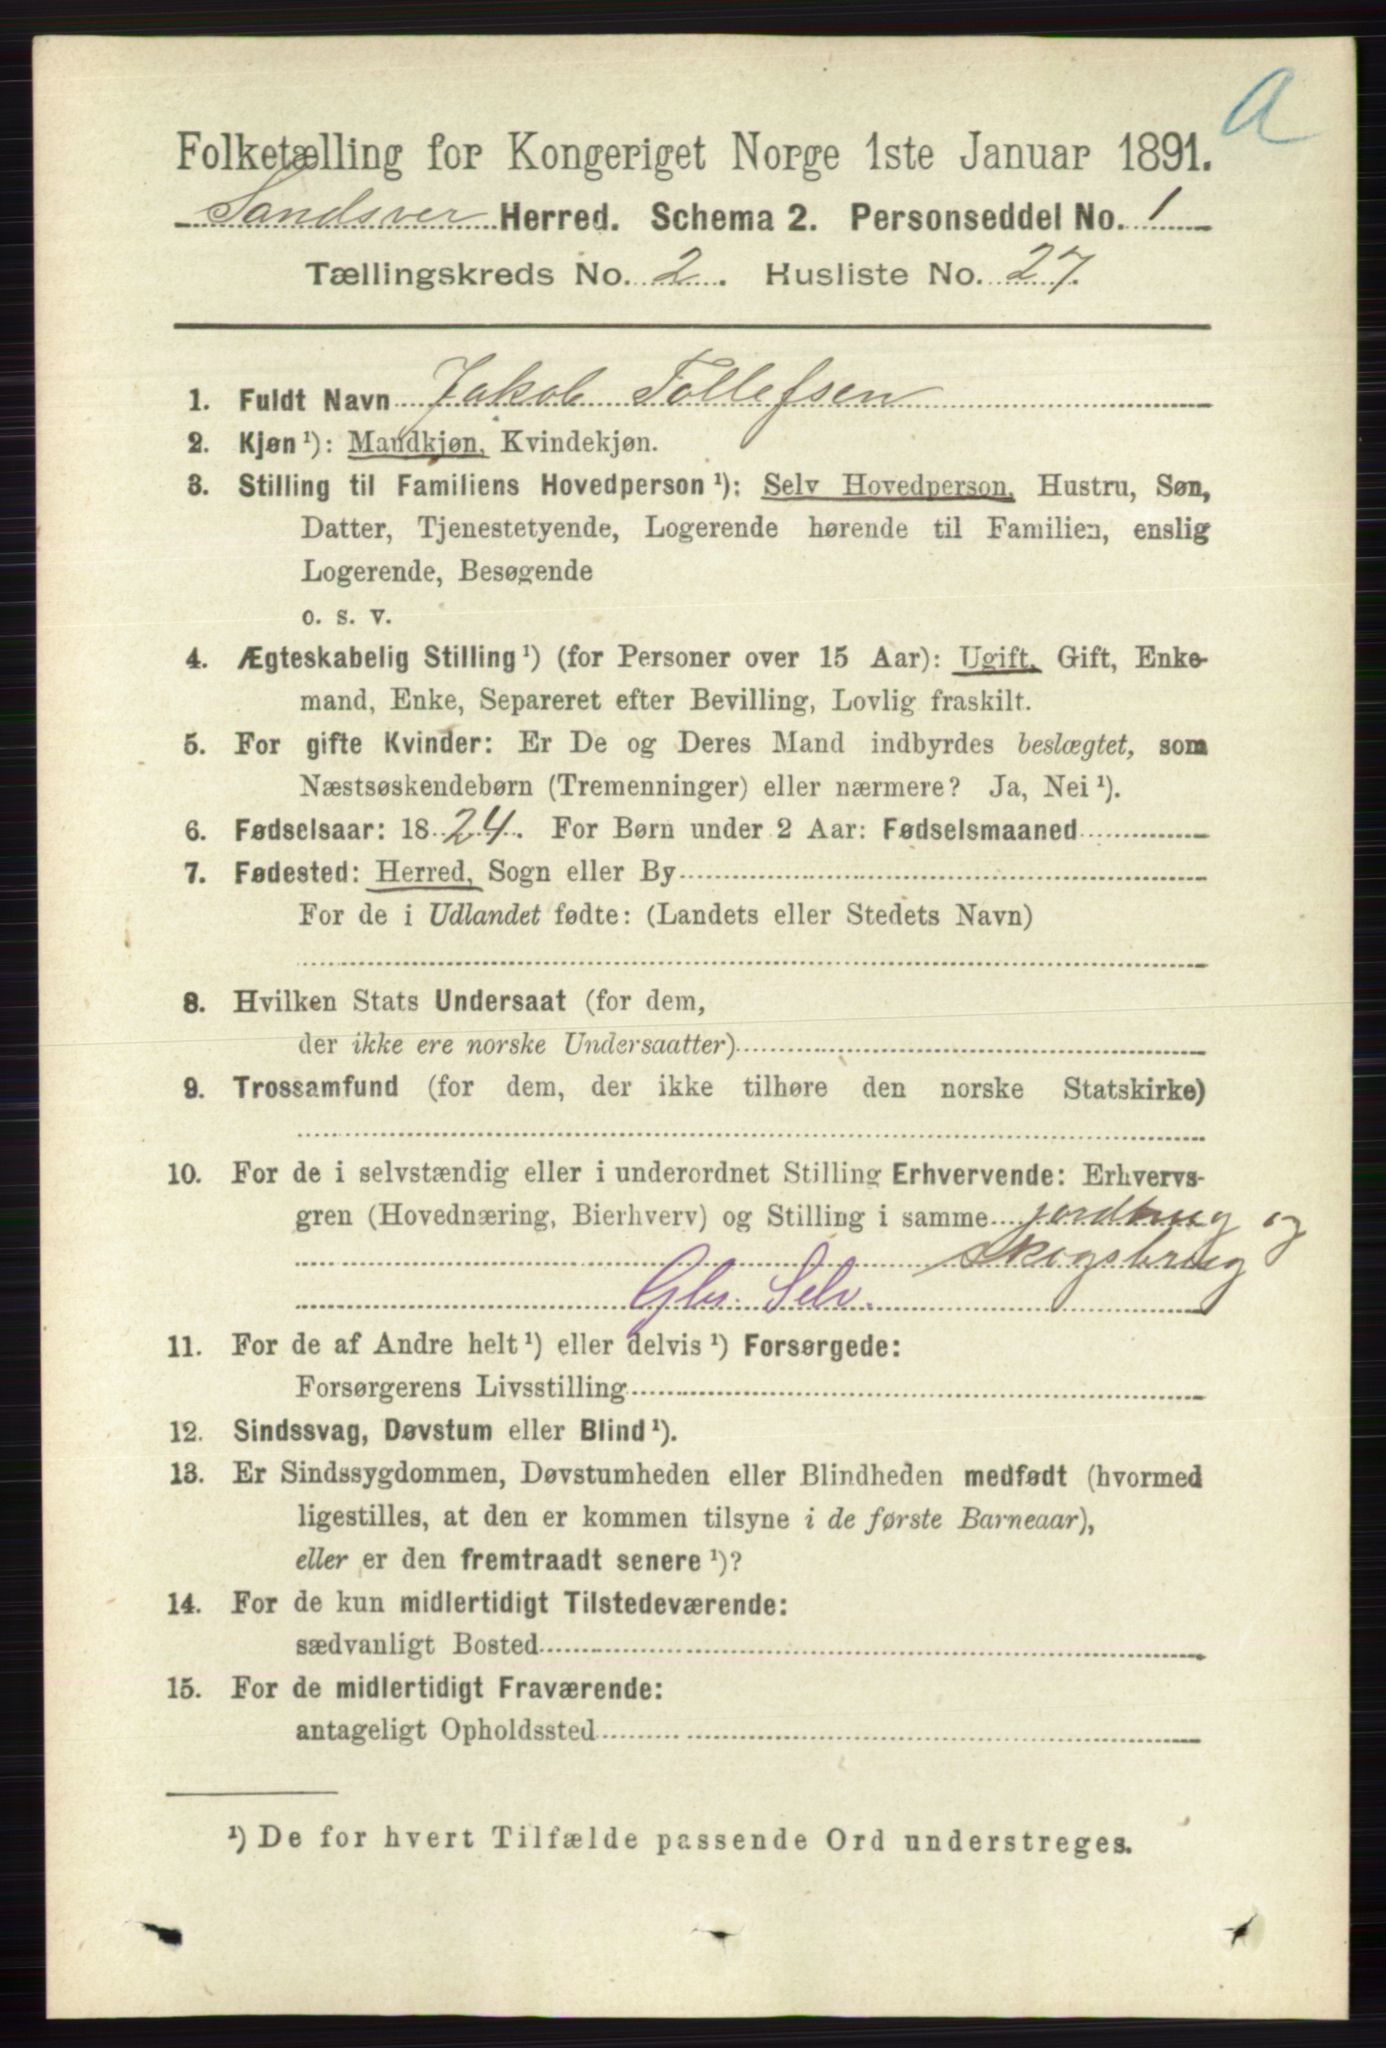 A
Folketælling for Kongeriget Norge 1ste Januar 1891.
Sandsver Herred. Schema 2. Personseddel No. 1
Tællingskreds No. 2. Husliste No. 27.
1. Fuldt Navn Jakob Tollefsen
2. Kjøn ¹): Mandkjøn, Kvindekjøn.
3. Stilling til Familiens Hovedperson ¹): Selv Hovedperson, Hustru, Søn,
Datter, Tjenestetyende, Logerende hørende til Familien, enslig
Logerende, Besøgende
o. s. v.
4. Ægteskabelig Stilling ¹) (for Personer over 15 Aar): Ugift, Gift, Enke-
mand, Enke, Separeret efter Bevilling, Lovlig fraskilt.
5. For gifte Kvinder: Er De og Deres Mand indbyrdes beslægtet, som
Næstsøskendebørn (Tremenninger) eller nærmere? Ja, Nei ¹).
6. Fødselsaar: 1824. For Børn under 2 Aar: Fødselsmaaned
7. Fødested: Herred, Sogn eller By
For de i Udlandet fødte: (Landets eller Stedets Navn)
8. Hvilken Stats Undersaat (for dem,
der ikke ere norske Undersaatter)
9. Trossamfund (for dem, der ikke tilhøre den norske Statskirke)
10. For de i selvstændig eller i underordnet Stilling Erhvervende: Erhvervs-
gren (Hovednæring, Bierhverv) og Stilling i samme jordbrug og
skogsbrug
Gbr. Selv.
11. For de af Andre helt ¹) eller delvis ¹) Forsørgede:
Forsørgerens Livsstilling
12. Sindssvag, Døvstum eller Blind ¹).
13. Er Sindssygdommen, Døvstumheden eller Blindheden medfødt (hvormed
ligestilles, at den er kommen tilsyne i de første Barneaar),
eller er den fremtraadt senere ¹)?
14. For de kun midlertidigt Tilstedeværende:
sædvanligt Bosted
15. For de midlertidigt Fraværende:
antageligt Opholdssted
¹) De for hvert Tilfælde passende Ord understreges.